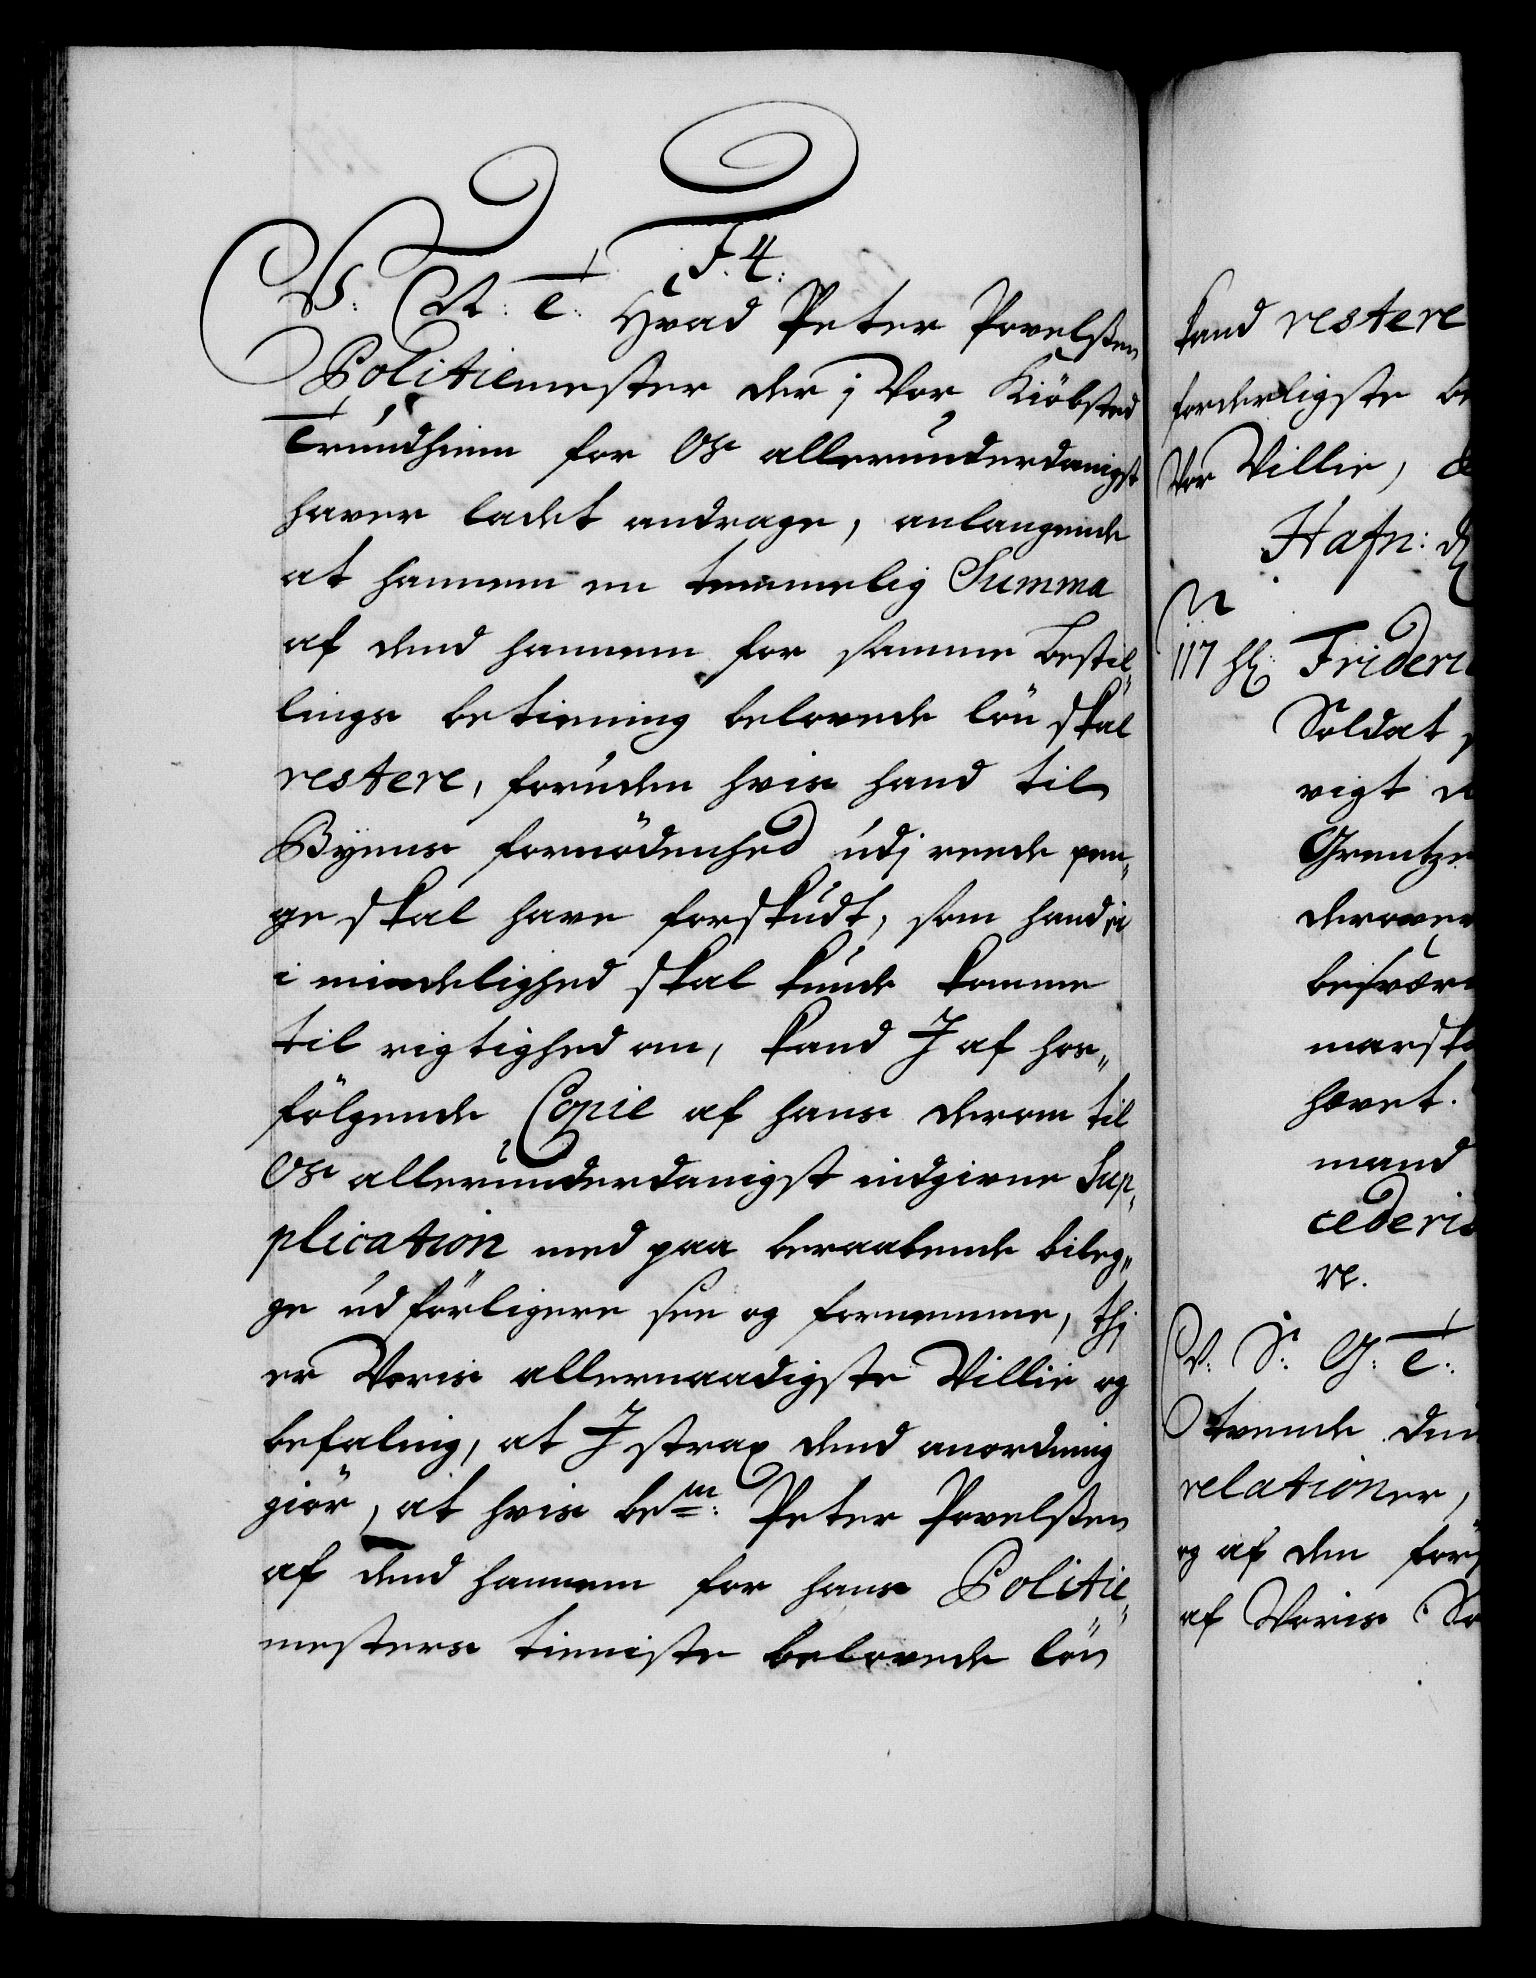 F. 4.
V: A: T: Hvad Peter Povelßen
Politiemester der i Vor Kiöbsted
Trundhiem for Os allerunderdanigst
haver ladet andrage, anlangende
at hannem en temmelig Summa
af dend hannem for samme bestil„
lings betiening belovede lön skal
restere, foruden hvis hand til
Byens fornödenhed udj reede pen„
ge skal have forskudt, som hand ei
i mindelighed skal kunde komme
til rigtighed om, kand J af hos„
fölgende Copie af hans derom til
Os allerunderdanigst indgivne Sup„
plication med paa beraabende bileg„
ge udförligere see og fornemme, thj
er Voris allernaadigste Villie og
befaling, at J strax dend anordning
giör, at hvis bem:te Peter Povelßen
af dend hannem for hans Politie„
mesters tienniste belovede lön
kand restere
forderligste be
Vor Villie,
Hafn: d
117 Frideri
Soldat
vigt
Grentze
derover
besvær
marsk
hovet.
mand
cederi
re.
V: S: G: T:
trende
relationer,
og af den förs
af Voris